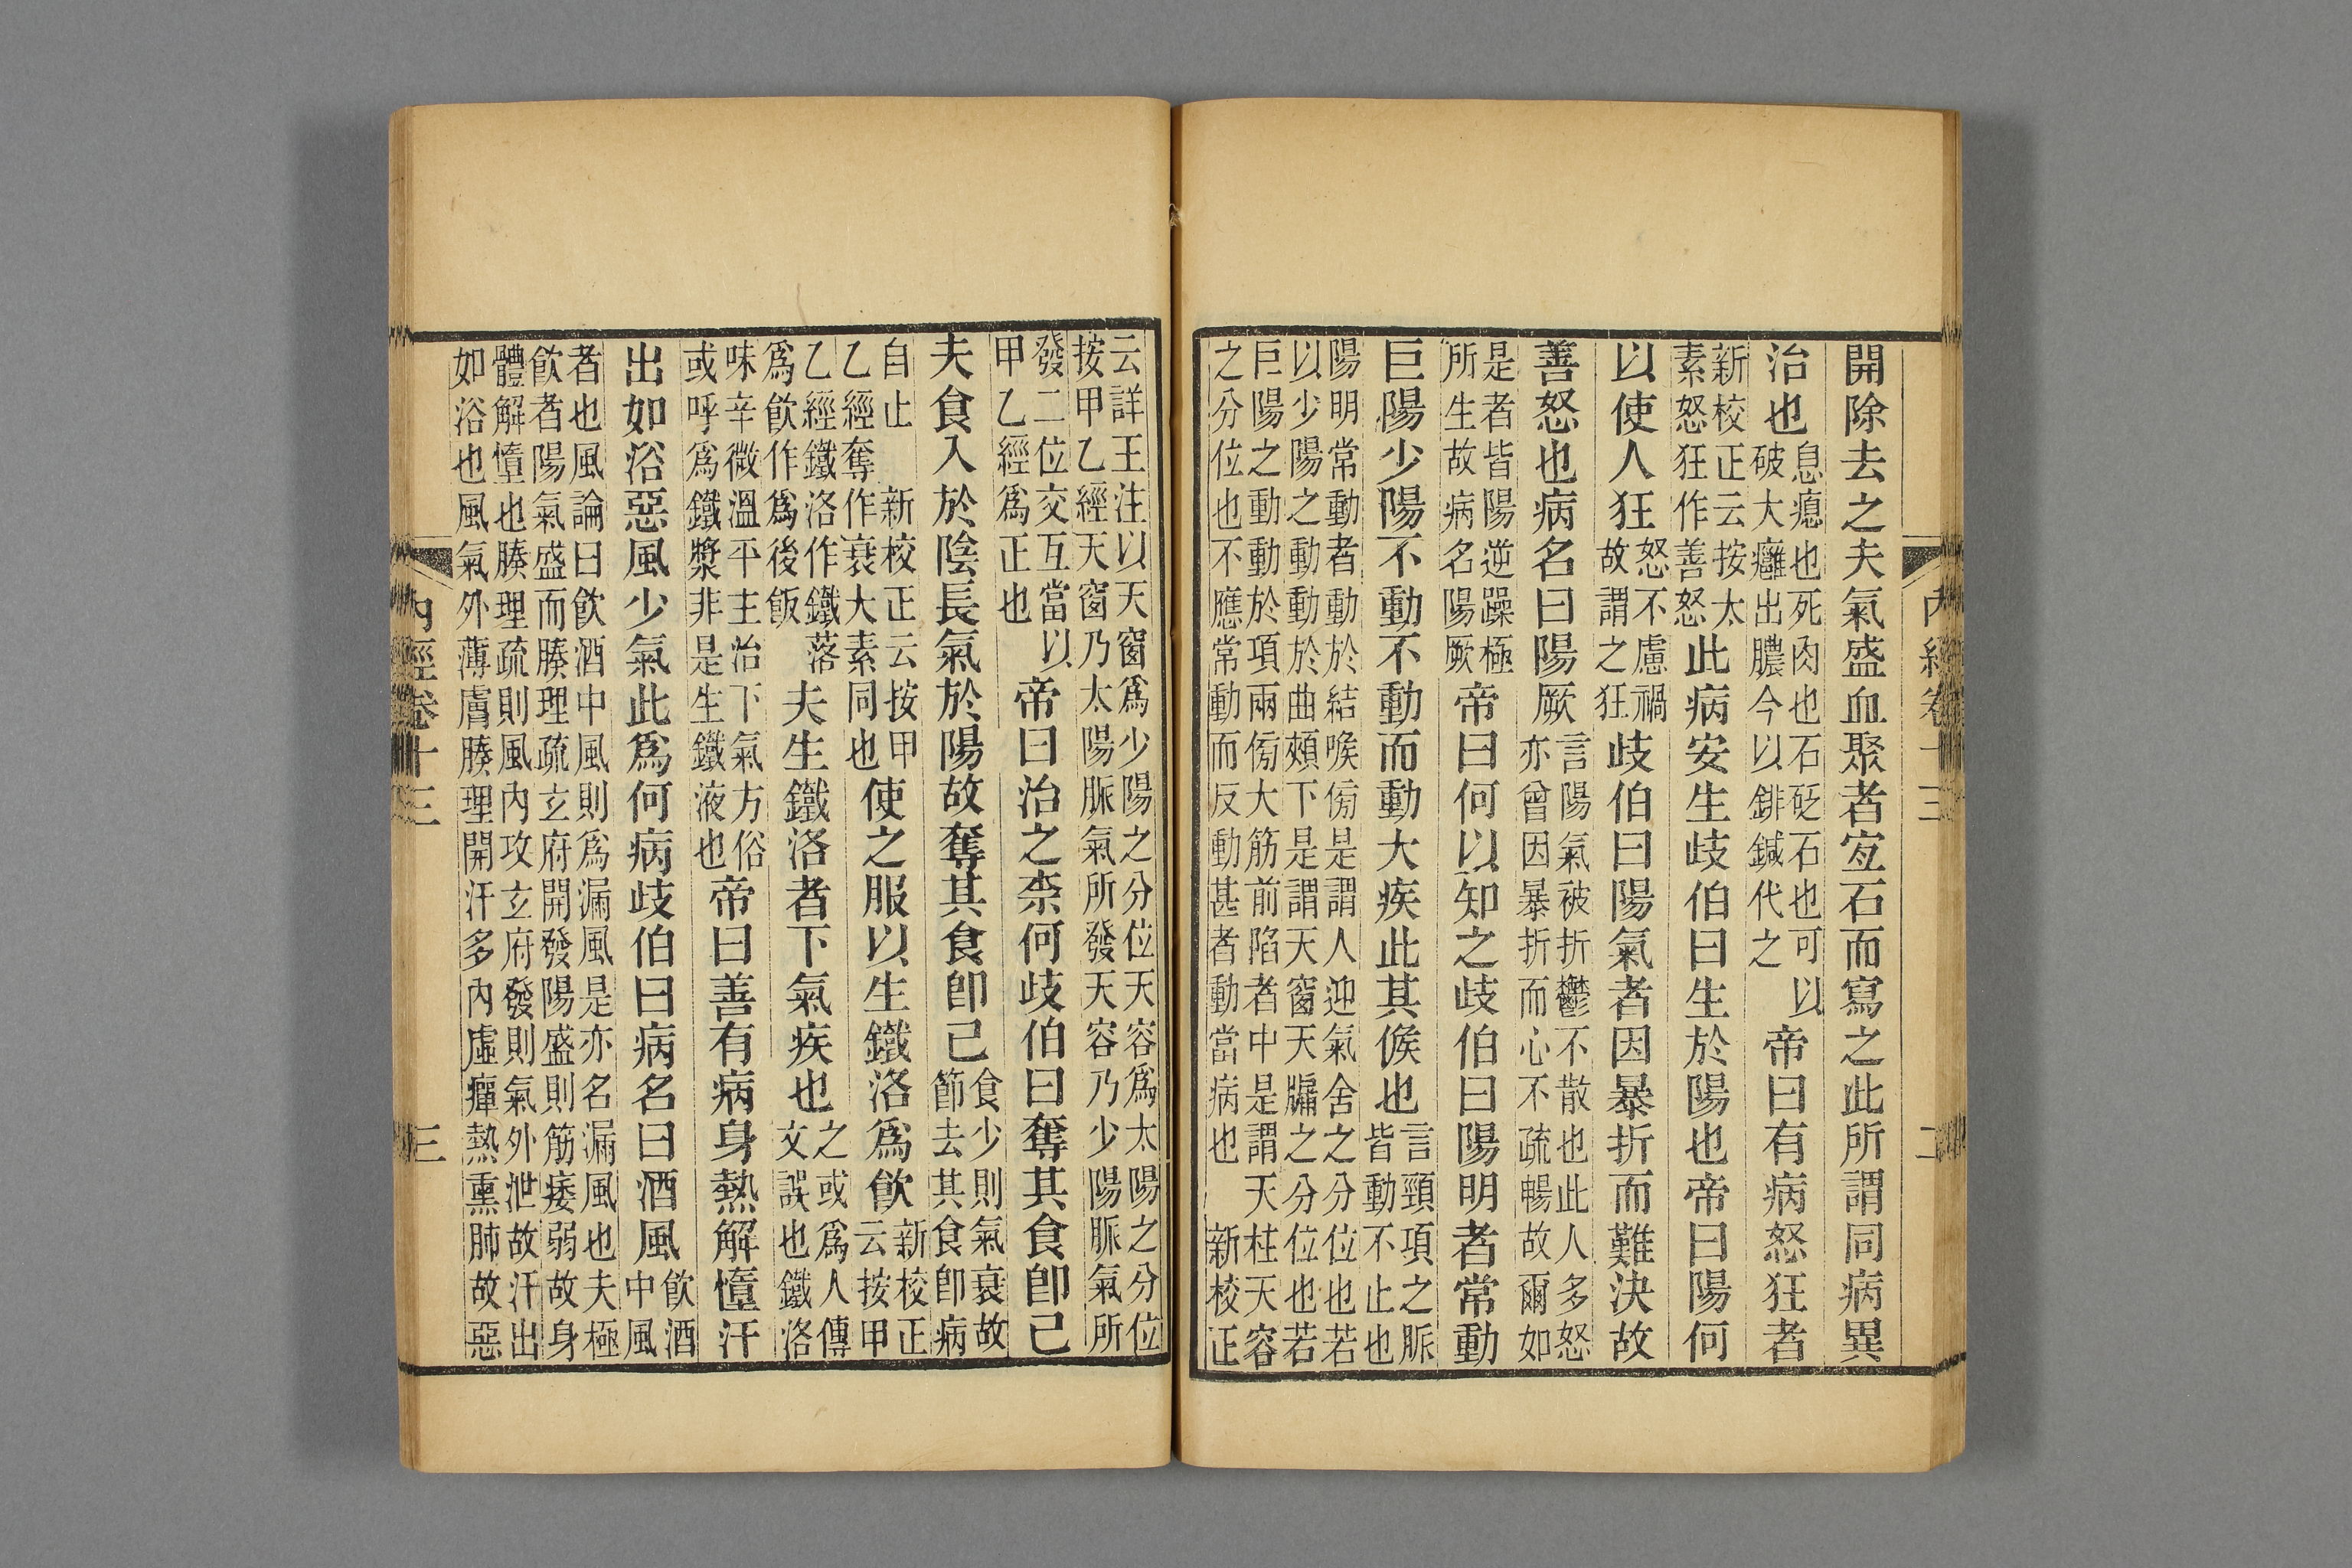 內經卷十三 二
開除去之夫氣盛血聚者宐石而寫之此所謂同病異
治也息瘜也死肉也石砭石也可以破大癰出膿今以䤵鍼代之帝曰有病怒狂者
新校正云按太素怒狂作善怒此病安生歧伯曰生於陽也帝曰陽何
以使人狂怒不慮禍故謂之狂歧伯曰陽氣者因暴折而難決故
善怒也病名曰陽厥言陽氣被折鬱不散也此人多怒亦曾因暴折而心不疏暢故爾如
是者皆陽逆躁極所生故病名陽厥帝曰何以知之歧伯曰陽明者常動
巨陽少陽不動不動而動大疾此其候也言頸項之脈皆動不止也
陽明常動者動於結喉傍是謂人迎氣舍之分位也若
以少陽之動動於曲頰下是謂天窗天牖之分位也若
巨陽之動動於項兩傍大筋前陷者中是謂天柱天容
之分位也不應常動而反動甚者動當病也 新校正
云詳王注以天窗爲少陽之分位天容爲太陽之分位
按甲乙經天窗乃太陽脈氣所發天容乃少陽脈氣所
發二位交互當以甲乙經爲正也帝曰治之柰何歧伯曰奪其食卽已
夫食入於陰長氣於陽故奪其食卽已食少則氣衰故節去其食卽病
自止 新校正云按甲乙經奪作衰大素同也使之服以生鐵洛爲飮新校正云按甲
乙經鐵洛作鐵落爲飮作爲後飯夫生鐵洛者下氣疾也之或爲人傳文誤也鐵洛
味辛微溫平主治下氣方俗或呼爲鐵漿非是生鐵液也帝曰善有病身熱解㑊汗
出如浴惡風少氣此爲何病歧伯曰病名曰酒風飮酒中風
者也風論曰飮酒中風則爲漏風是亦名漏風也夫極
飮者陽氣盛而腠理疏玄府開發陽盛則筋痿弱故身
體解㑊也腠理疏則風內攻玄府發則氣外泄故汗出
如浴也風氣外薄膚腠理開汗多內虛癉熱熏肺故惡
內經卷十三 三